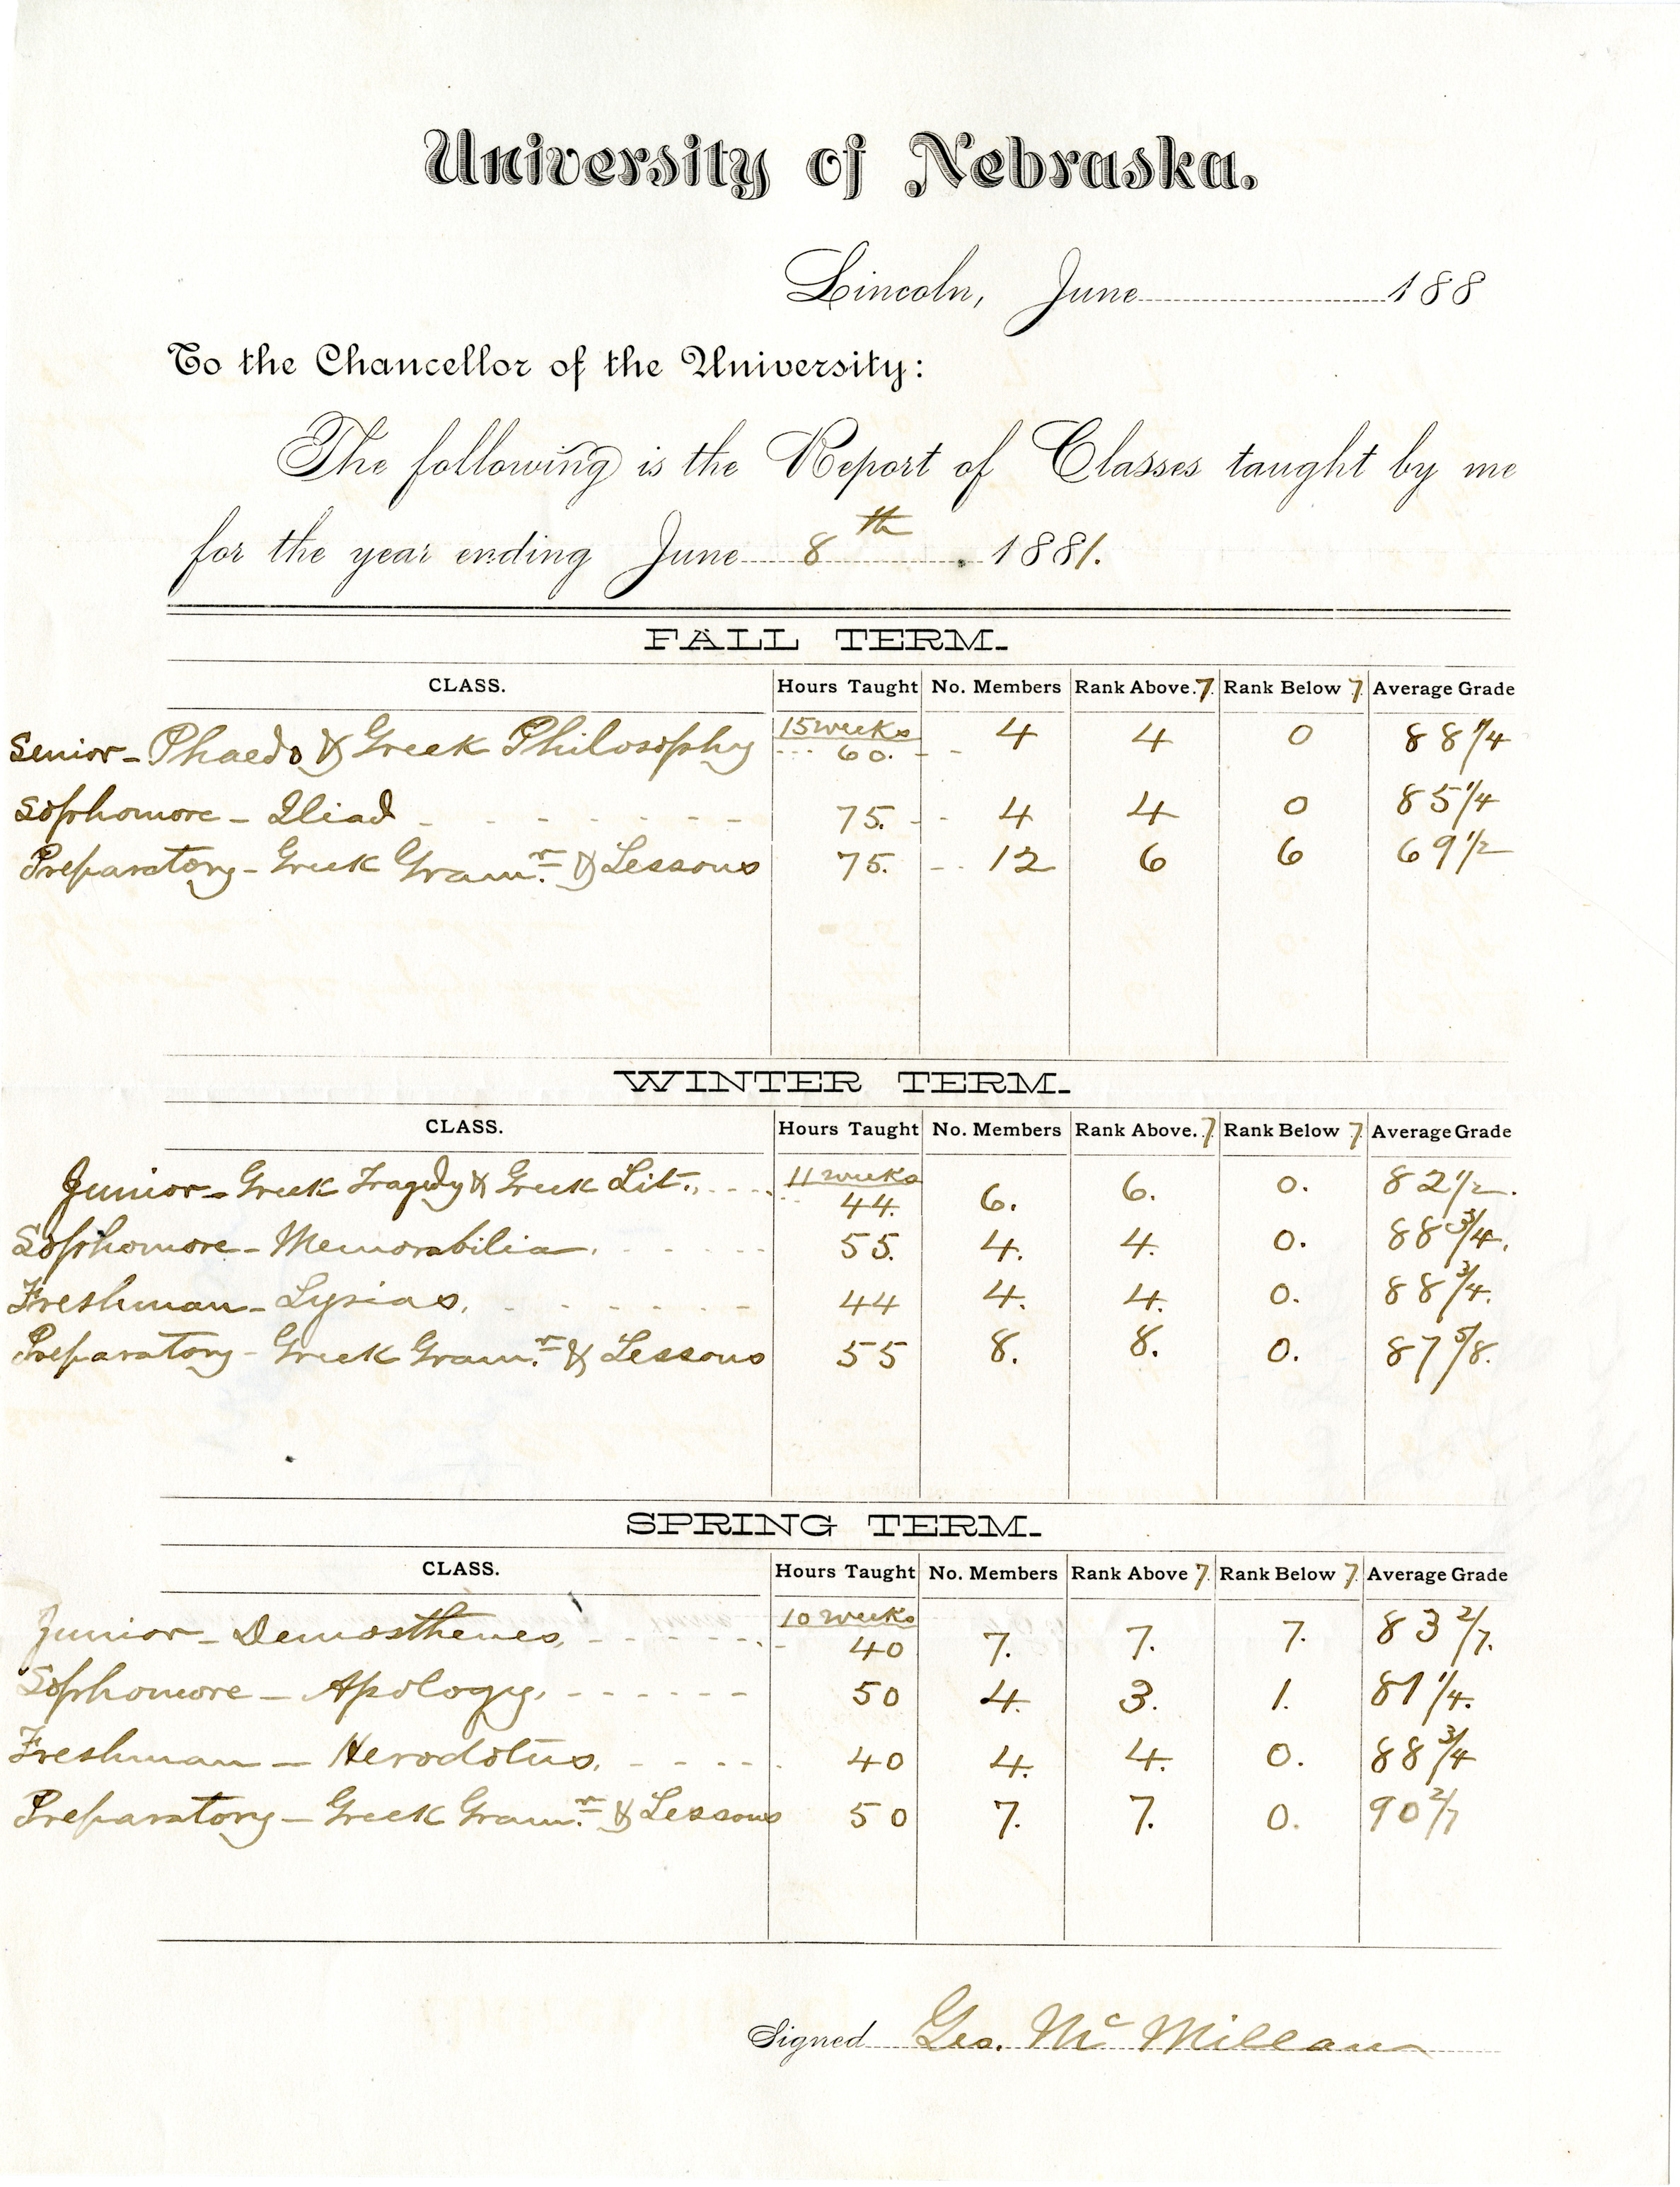 University of Nebraska.
Lincoln, June 188
To the Chancellor of the University:
The following is the Report of Classes taught by me
for the year ending June 8th 1881.
FALL TERM.
CLASS. Hours Taught No. Members Rank Above. 7. Rank Below 7. Average Grade
15 weeks
Senior - Phaedo & Greek Philosophy 60. 4 4 0 88 1/4
Sophomore - Iliad 75. 4 4 0 85 1/4
Preparatory - Greek Gram.r & Lessons 75. 12 6 6 69 1/2
WINTER TERM.
CLASS. Hours Taught No. Members Rank Above. 7. Rank Below 7. Average Grade
11 weeks
Junior - Greek Tragedy & Greek Lit., 44. 6. 6. 0. 82 1/2.
Sophomore - Memorabilia. 55. 4. 4. 0. 88 3/4.
Freshman - Lysias. 44 4. 4. 0. 88 3/4.
Preparatory - Greek Gram.r & Lessons 55 8. 8. 0. 87 5/8.
SPRING TERM.
CLASS. Hours Taught No. Members Rank Above 7. Rank Below 7. Average Grade
10 weeks
Junior - Demosthenes, 40 7. 7. 7. 83 2/7.
Sophomore - Apology, 50 4. 3. 1. 81 1/4.
Freshman - Herodotus. 40 4. 4. 0. 88 3/4
Preparatory - Greek Gram.r & Lessons 50 7. 7. 0. 90 2/7
Signed Geo. McMillan